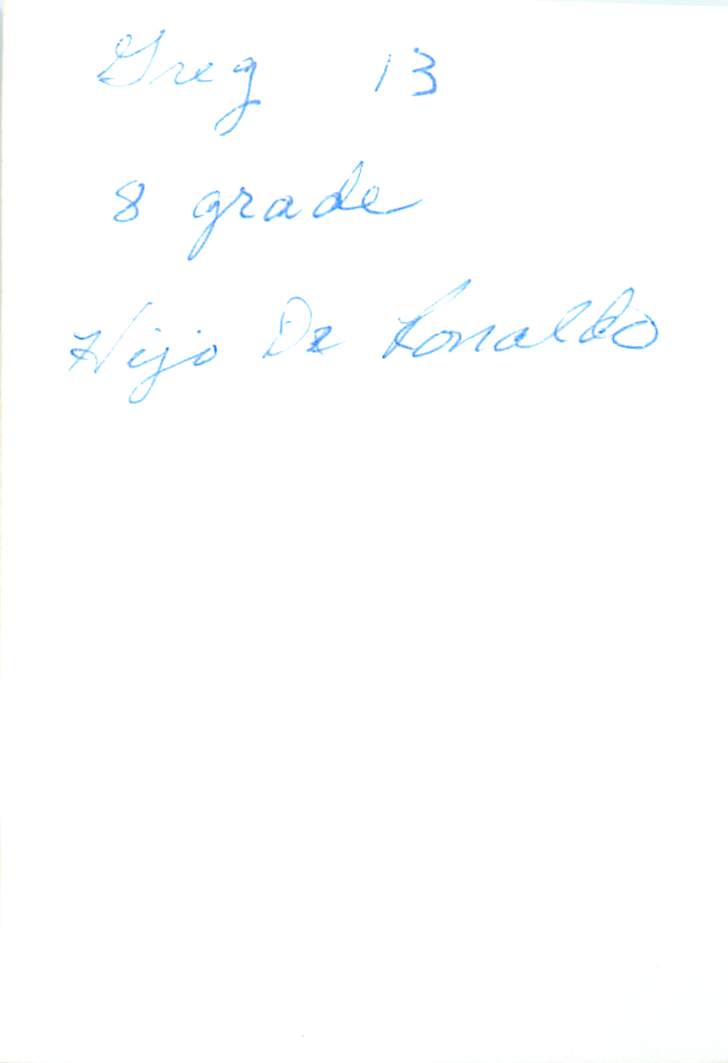 Greg 13
8 grade
Hijo De Ronaldo